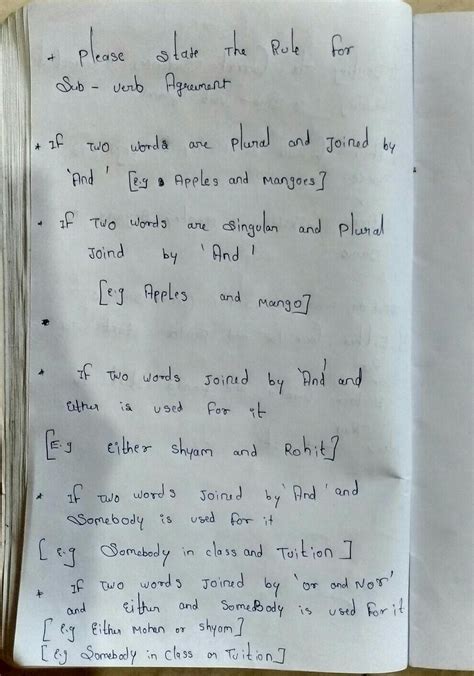 * Please state The Rule for
Sub - verb Agreement
* If Two words are Plural and Joined by
'And' [e.g Apples and Mangoes]
* If Two words are Singular and Plural
Joind by 'And'
[e.g Apples and Mango]
*
* If Two words Joined by 'And' and
Either is used for it
[E.g Either Shyam and Rohit]
* If Two words Joined by 'And' and
Somebody is used for it
[e.g Somebody in class and Tuition]
* If Two words Joined by 'or and Nor'
and Either and SomeBody is used for it
[e.g Either Mohen or Shyam]
[e.g Somebody in Class or Tuition]